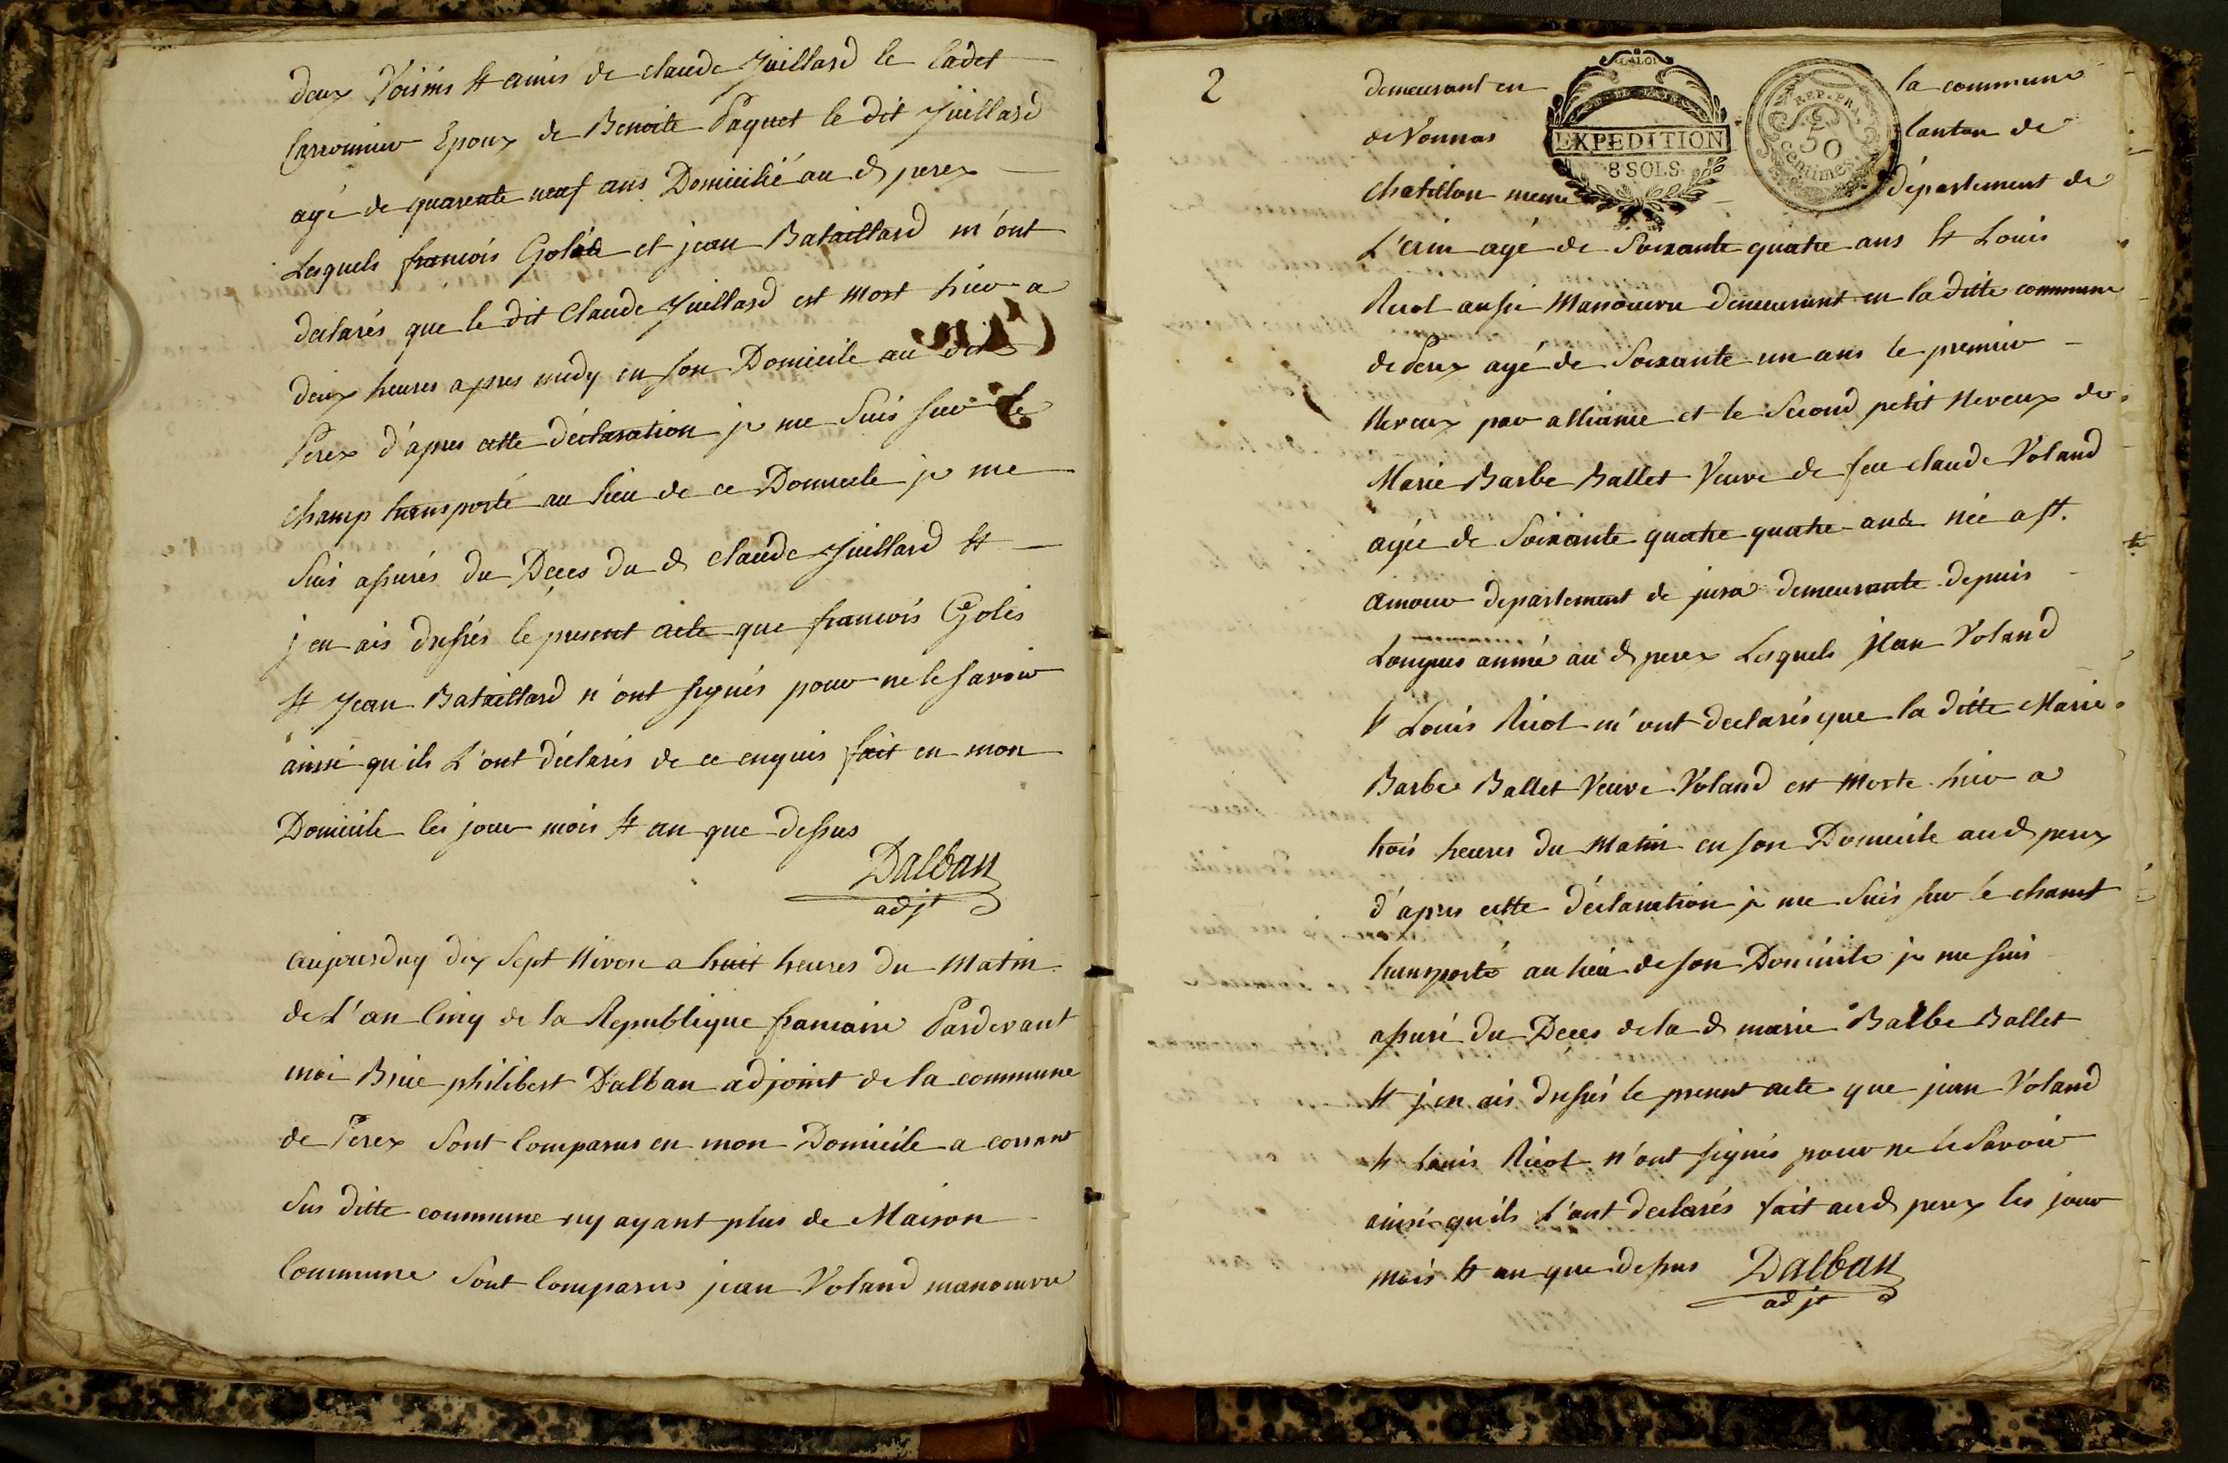 deux Voisins & amis de claude juillard le Cadet
Carronnier Epoux de Benoite Paquet le dit juillard
agé de quarente neuf ans Domicilié au d perex
Lesquels francois Golés et jean Bataillard m'ont
declarés que le dit Claude Juillard est mort hier a
deux heures apres midy en son Domicile au dit
Perex d'apres cette déclaration je me suis sur le
champ transporté au lieu de ce Domicile je me
suis assurés du Deces du d claude Juillard &
j en ais dressés le present acte que francois Golés
& Jean Bataillard n'ont signés pour ne le savoir
ainsi qu ils L'ont déclarés de ce enquis fait en mon
Domicile les jour mois & an que dessus
Dalban
adjt
aujourduy dix Sept Nivose a huit heures du Matin
de L'an Cinq de la Republique francaise Pardevant
moi Brice philibert Dalban adjoint de la commune
de Perex Sont Comparus en mon Domicile a corrant
Sus ditte commune ny ayant plus de Maison
Commune Sont Comparus jean Voland manoeuvre
2
demeurant en la commune
LA LOI
REP. FRA.
de Vonnas Canton de
EXPEDITION
8 SOLS.
50
centimes.
chatillon meme département de
L'ain agé de Soixante quatre ans & Louis
Ricol aussi Manouvre demeurant en la ditte commune
de Perex agé de Soixante un ans le premier
Neveux par alliance et le Second petit Neveux de
Marie Barbe Ballet Veuve de feu claude Voland
agée de Soixante quatre quatre ans née a st.
amour departement de jura demeurante depuis
Longues anné au d perex Lesquels Jean Voland
& Louis Ricol m'ont declarés que la ditte Marie
Barbe Ballet Veuve Voland est Morte hier a
trois heures du Matin en son Domicile au d perex
d'apres cette déclaration je me suis sur le chamt
transporté au lieu de son Domicile je me suis
assuré du Deces de la d marie Balbe Ballet
& j'en ais dressés le present acte que jean Voland
& Louis Ricol n'ont signés pour ne le Savoir
ainsi qu'ils L'ont declarés fait au d perex les jour
mois & an que dessus Dalban
adjt